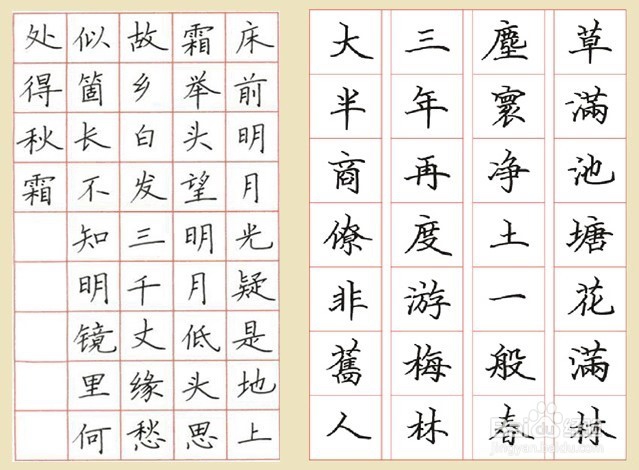 床前明月光疑是地上
霜举头望明月低头思
故乡白发三千丈缘愁
似箇长不知明镜里何
处得秋霜
草滿池塘花滿林
塵寰净土一般春
三年再度游梅林
大半商僚非舊人
Baidu 经验
jingyan.baidu.com